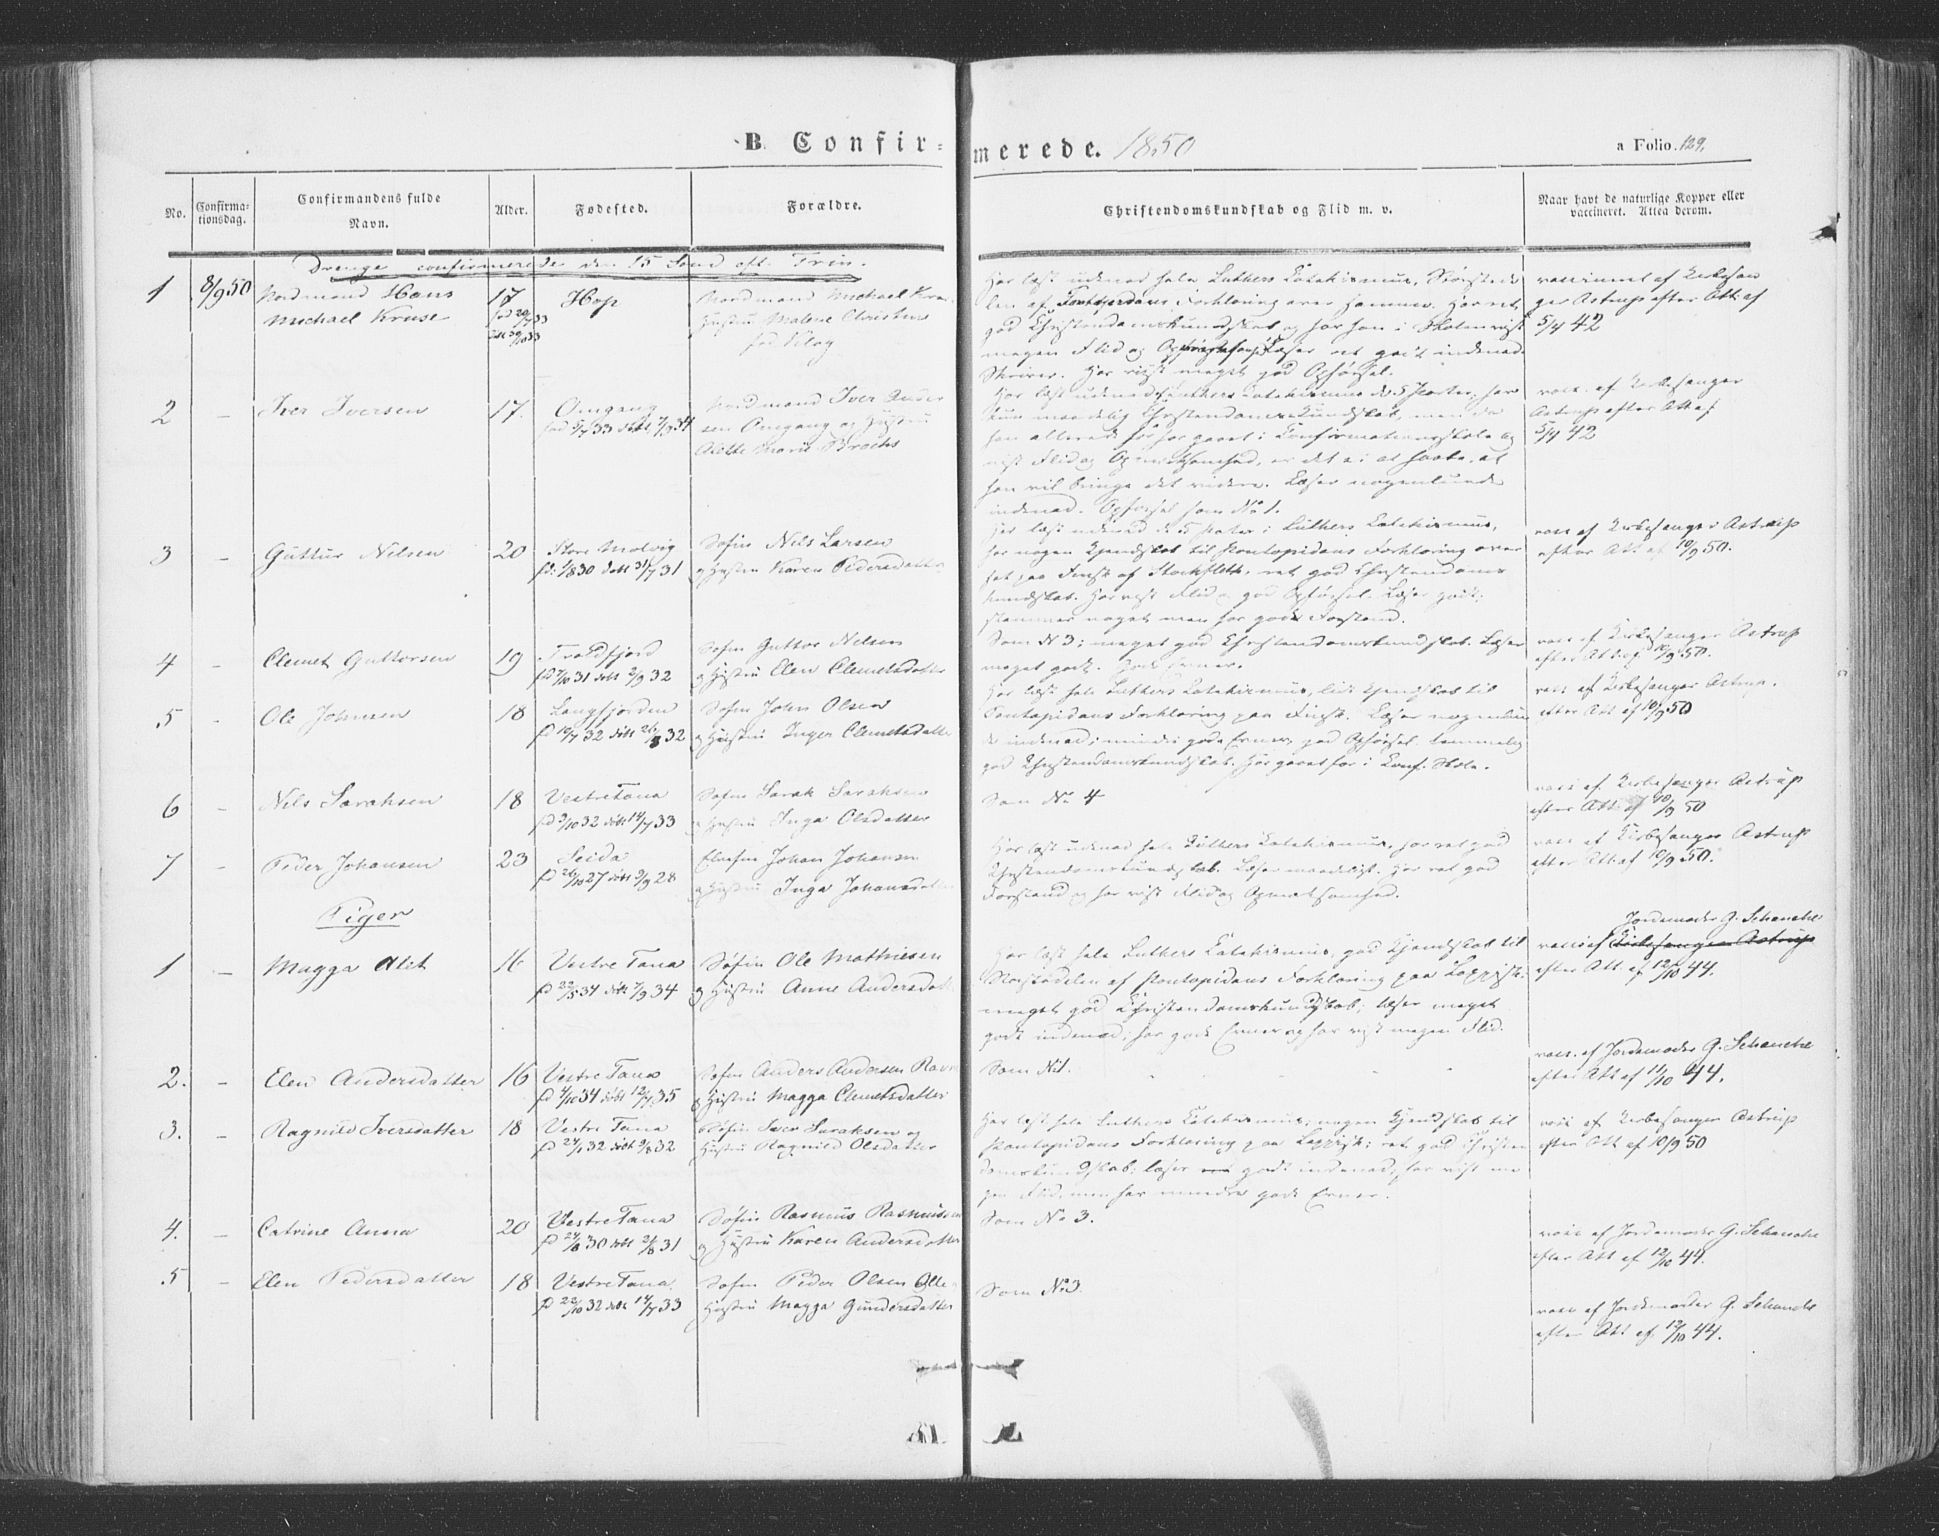 B. Confir=merede. 1850
a Folio 129.
No.
Confirma-
tionsdag.
Confirmandens fulde
Navn.
Alder.
Fødested.
Forældre.
Christendomskundskab og Flid m. v.
Naar havt de naturlige Kopper eller
vaccineret. Attest derom.
Drenge confirmerede den 15 Sønd. eft. Trin.
1 8/9 50 Nordmand Hans
Michael Kruse
17
Hop
Nordmand Michael Kru
Hustru Malene Christine
Har læst udenad hele Luthers Katekismus, Størstede
len af Pontopidans Forklaring
god Christendomskundskab og har han i Skolen vist
megen Flid og Læser ret godt indenad
Skriver. Har viist meget god Opførsel.
vaccineret af Kirkesan
ger Astrup efter Att. af
5/4 42
2 - Iver Iversen
17.
Omgang
Nordmand Iver Ander
sen Omgang og Hustru
Alette Marie Brochs
Har læst udenad Luthers Katekismus de 5 Parter, har
kun maadelig Christendomskundskab, men da
han allerede før har gaaet i Confirmationsskole og
vist Flid og Opmerksomhed, er det at haabe, at
han vil bringe det videre. Læser nogenlunde
indenad. Opførsel som No 1.
vacc. af Kirkesanger
Astrup efter Att af
5/4 42
3 - Guttur Nilsen
20
Store Molvig
Søfin Nils Larsen
og Hustru Karen Pedersdatter
Har læst udenad de 5 Parter i Luthers Katekismus,
har nogen Kjendskab til Pontopidans Forklaring over
sat paa Finsk af Stockfleth, ret god Christendoms
kundskab. Har vist Flid og god Opførsel. Læser godt,
stammer noget men har godt Forstand.
vacc af Kirkesanger Astrup
efter Att af 10/9 50.
4 - Clemet Guttorsen
19
Troldfjord
Søfin Guttor Nilsen
og Hustru Elen Clemetsdatter
Som N 3; meget god Christendomskundskab. Læser
meget godt. Gode Evner.
vacc af Kirkesanger Astrup
efter Att. af 10/9 50.
5 - Ole Johnsen
18
Langfjorden
Søfin John Olsen
og Hustru Inger Clemetsdatter
Har læst hele Luthers Katekismus, lidt Kjendskab til
Pontopidans Forklaring paa Finsk. Læser nogenlun
de indenad; mindre gode Evner, god Opførsel. temmelig
god Christendomskundskab. Har gaaet før i Conf. Skole.
vacc af Kirkesanger Astrup.
efter Att af 10/9 50
6 - Nils Sarahsen
18
Vestre Tana
Søfin Sarak Sarahsen
og Hustru Inga Olsdatter
Som No 4
vacc af Kirkesanger Astrup
efter Att. af 10/9 50
7 - Peder Johansen
23
Seida
Elvefin Johan Johansen
og Hustru Inga Johansdatter
Har læst udenad hele Luthers Katekismus, har ret god
Christendomskundskab. Læser maadeligt. Har ret god
Forstand og har vist Flid og Opmerksomhed.
vacc af Kirkesanger Astrup
efter Att af 10/9 50.
Piger
1 - Magga Alet
16
Vestre Tana
Søfin Ole Mathiesen
og Hustru Anne Andersdatter
Har læst hele Luthers Katekismus, god Kjendskab til
Størstedelen af Pontopidans Forklaring paa Lappisk,
meget god Christendomskundskab; læser meget
godt indenad; har gode Evner og har vist megen Flid.
Jordemoder G. Schanche
vacc af Kirkesanger Astrup
efter Att. af 12/10 44.
2. - Elen Andersdatter
16
Vestre Tana
Søfin Anders Andersen Ravn
og Hustru Magga Clemetsdatter
Som No 1.
vacc. af Jordemoder G. Schanche
efter Att af 11/10 44.
3. - Ragnild Iversdatter
18
Vestre Tana
Søfin Iver Sarahsen og
Hustru Ragnild Olsdatter
Har læst hele Luthers Katekismus; nogen Kjendskab til
Pontopidans Forklaring paa Lappisk; ret god Christen
domskundskab; læser godt indenad; har vist me
gen Flid, men har mindre gode Evner.
vacc af Kirkesanger Astrup
efter Att af 10/9 50
4. - Catrine Anna
20
Vestre Tana
Søfin Rasmus Rasmussen
og Hustru Karen Andersdatter
Som No 3.
vacc af Jordemoder G. Schanche
efter Att af 12/10 44.
5 - Elen Pedersdatter
18
Vestre Tana
Søfin Peder Olsen
Hustru Magga Gundersdatter
Som No 3.
vacc af Jordemoder G. Schanche
efter Att af 12/10 44.